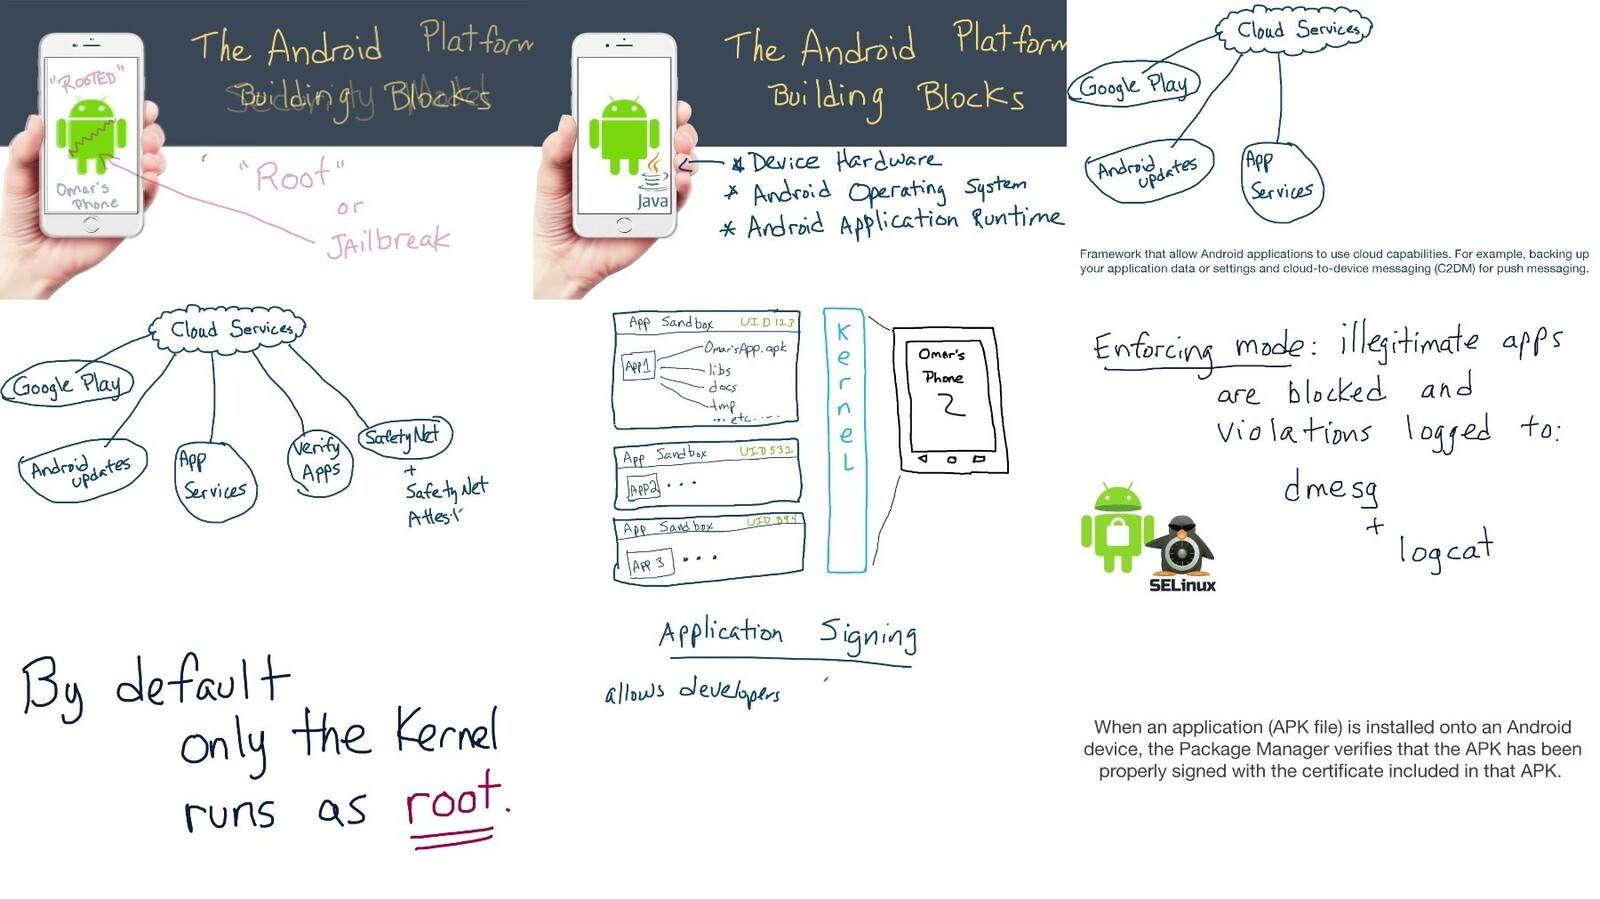 The Android Platform
Building Blocks
"ROOTED"
Omar's
Phone
"Root"
or
JAilbreak
The Android Platform
Building Blocks
Java
* Device Hardware
* Android Operating System
* Android Application Runtime
Cloud Services
Google Play
Android updates
App
Services
Framework that allow Android applications to use cloud capabilities. For example, backing up
your application data or settings and cloud-to-device messaging (C2DM) for push messaging.
Cloud Services
Google Play
Android updates
App
Services
Verify
Apps
SafetyNet
+
SafetyNet
Attest
App Sandbox UID123
App1
Omar'sApp.apk
libs
docs
tmp
...etc.....
App Sandbox UID532
App2 ...
App Sandbox UID 894
App 3 ...
Kernel
Omar's
Phone
2
Enforcing mode: illegitimate apps
are blocked and
violations logged to:
dmesg
+
logcat
SELinux
By default
only the Kernel
runs as root.
Application Signing
allows developers
When an application (APK file) is installed onto an Android
device, the Package Manager verifies that the APK has been
properly signed with the certificate included in that APK.